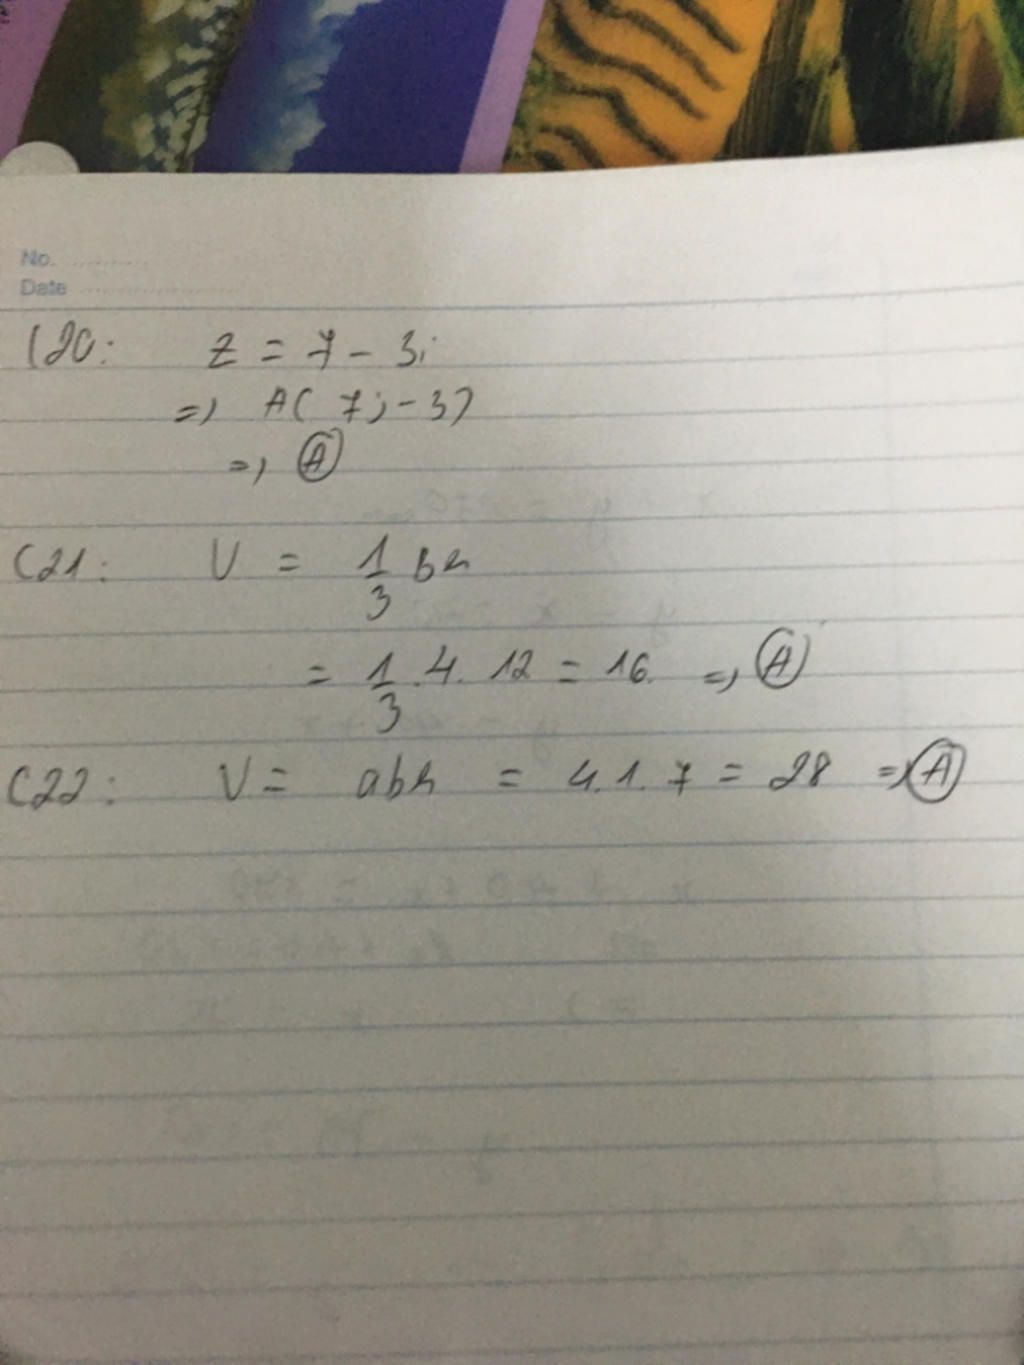 No. ............
Date .......................
C20: z = 7 - 3i
=> A(7; -3)
=> A
C21: V = 1/3 bh
= 1/3 . 4 . 12 = 16. => A
C22: V = abh = 4.1.7 = 28 => A